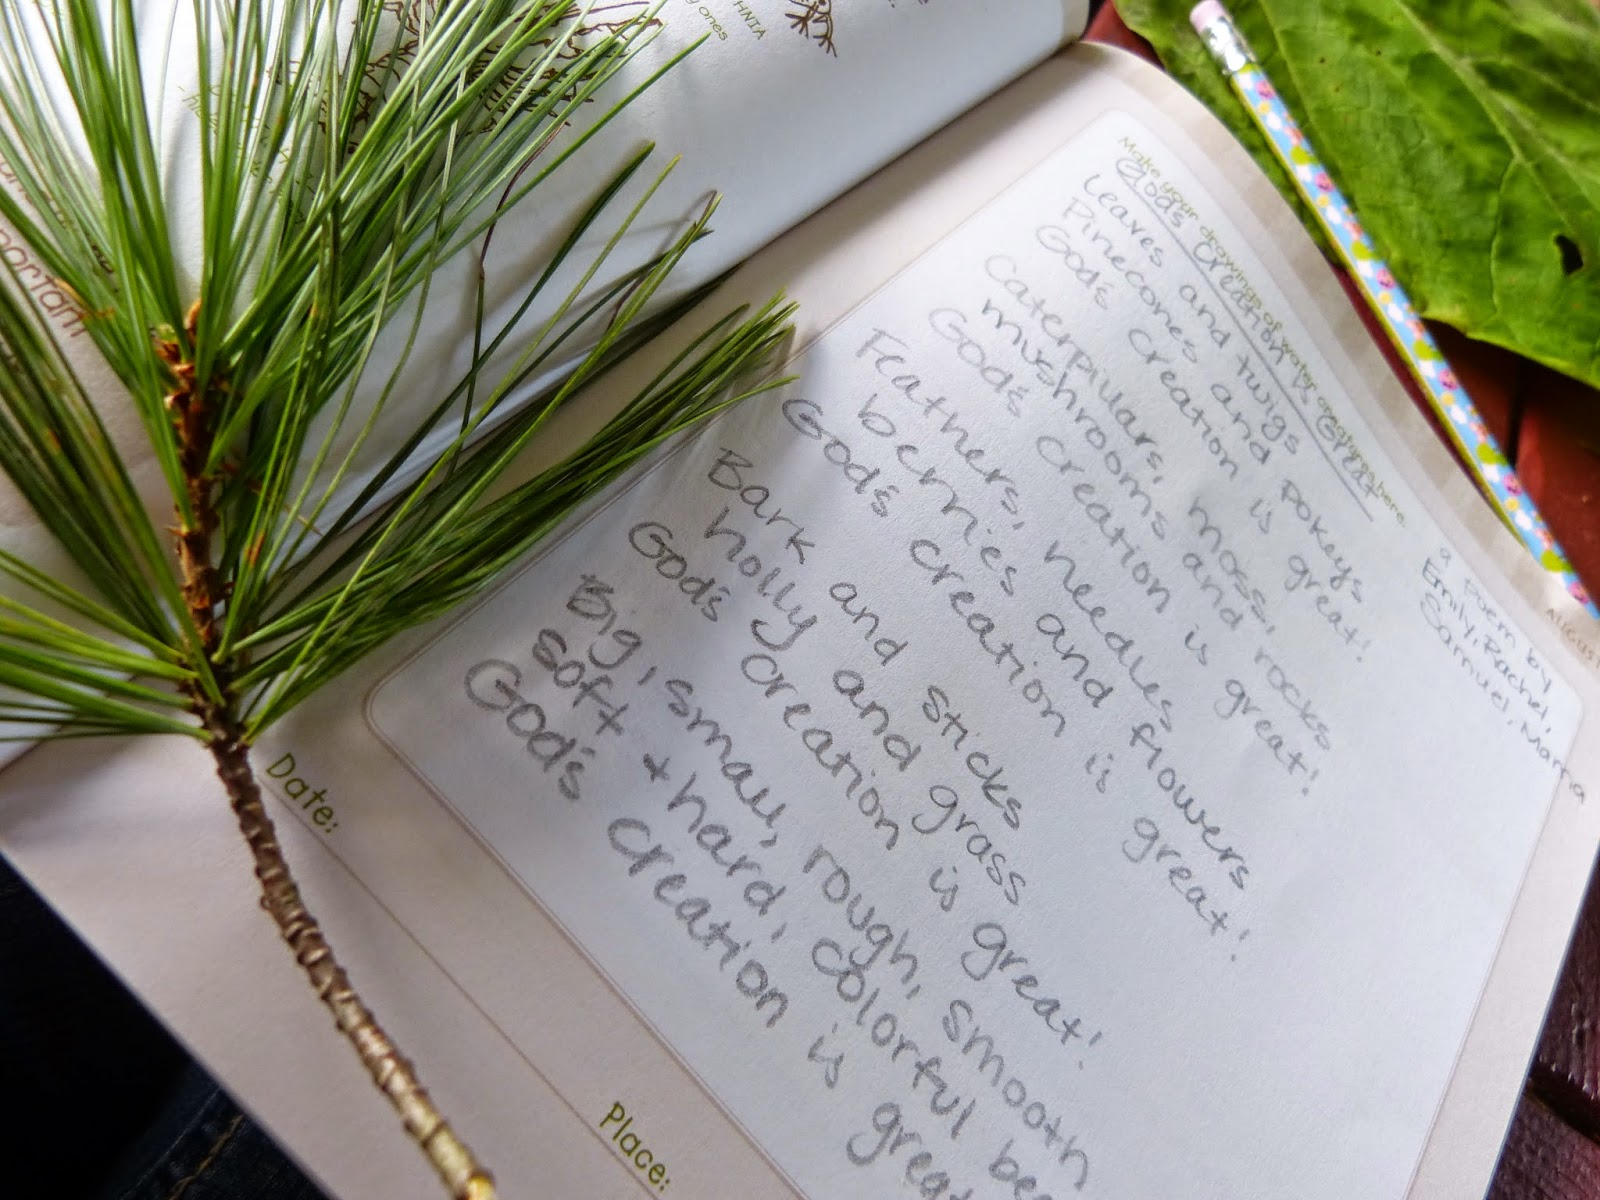 HNTA
y ones
portant
Make your drawings of water creatures here.
Gods Creation is Great
Leaves and twigs
Pinecones and pokeys
God's creation is great!
Caterpiulars, moss, rocks
mushrooms and
God's creation is great!
Feathers, needles
berries and flowers
God's creation is great!
Bark and sticks
holly and grass
God's creation is great!
Big, small, rough, smooth
soft + hard, colorful be
God's creation is grea
a poem by
Emily, Rachel,
Samuel, Mama
Date:
Place: